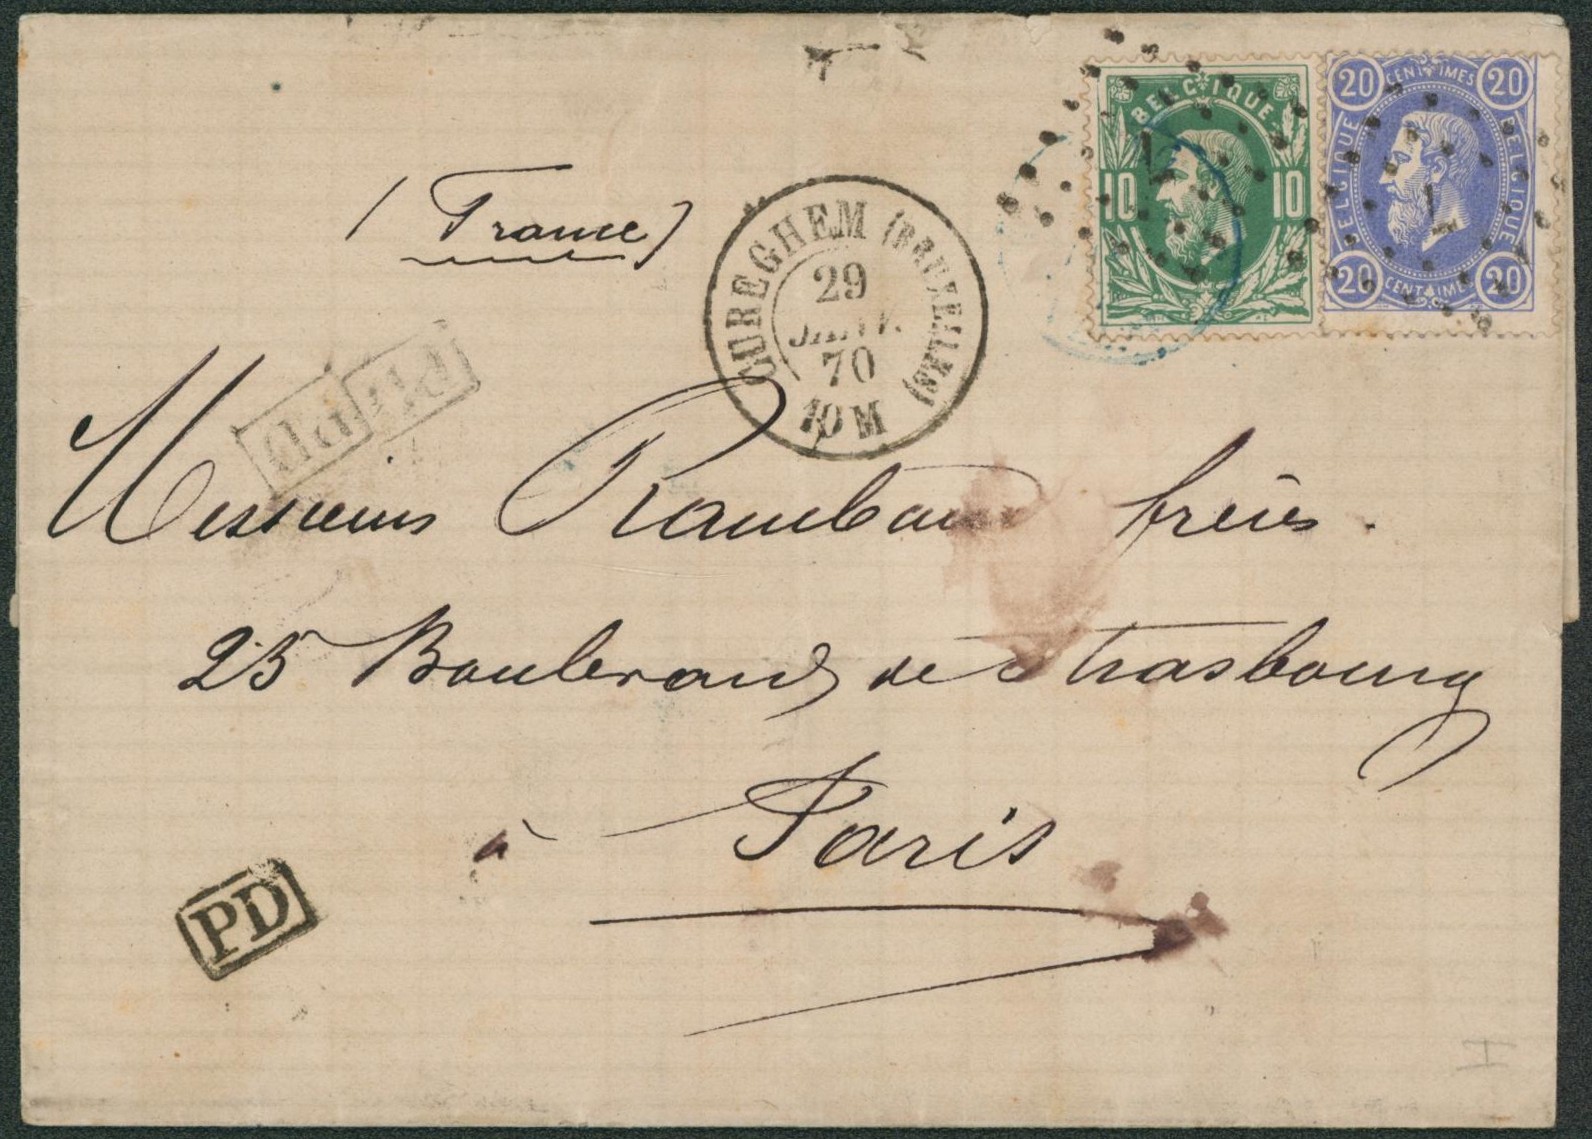 BELGIQUE
10 10
20 CENTIMES 20
BELGIQUE BELGIQUE
20 CENTIMES 20
(France)
CUREGHEM (BRUXELLES)
29
JANV.
70
10 M
Messieurs frères.
25 Boulevard de Strasbourg
à Paris
PD